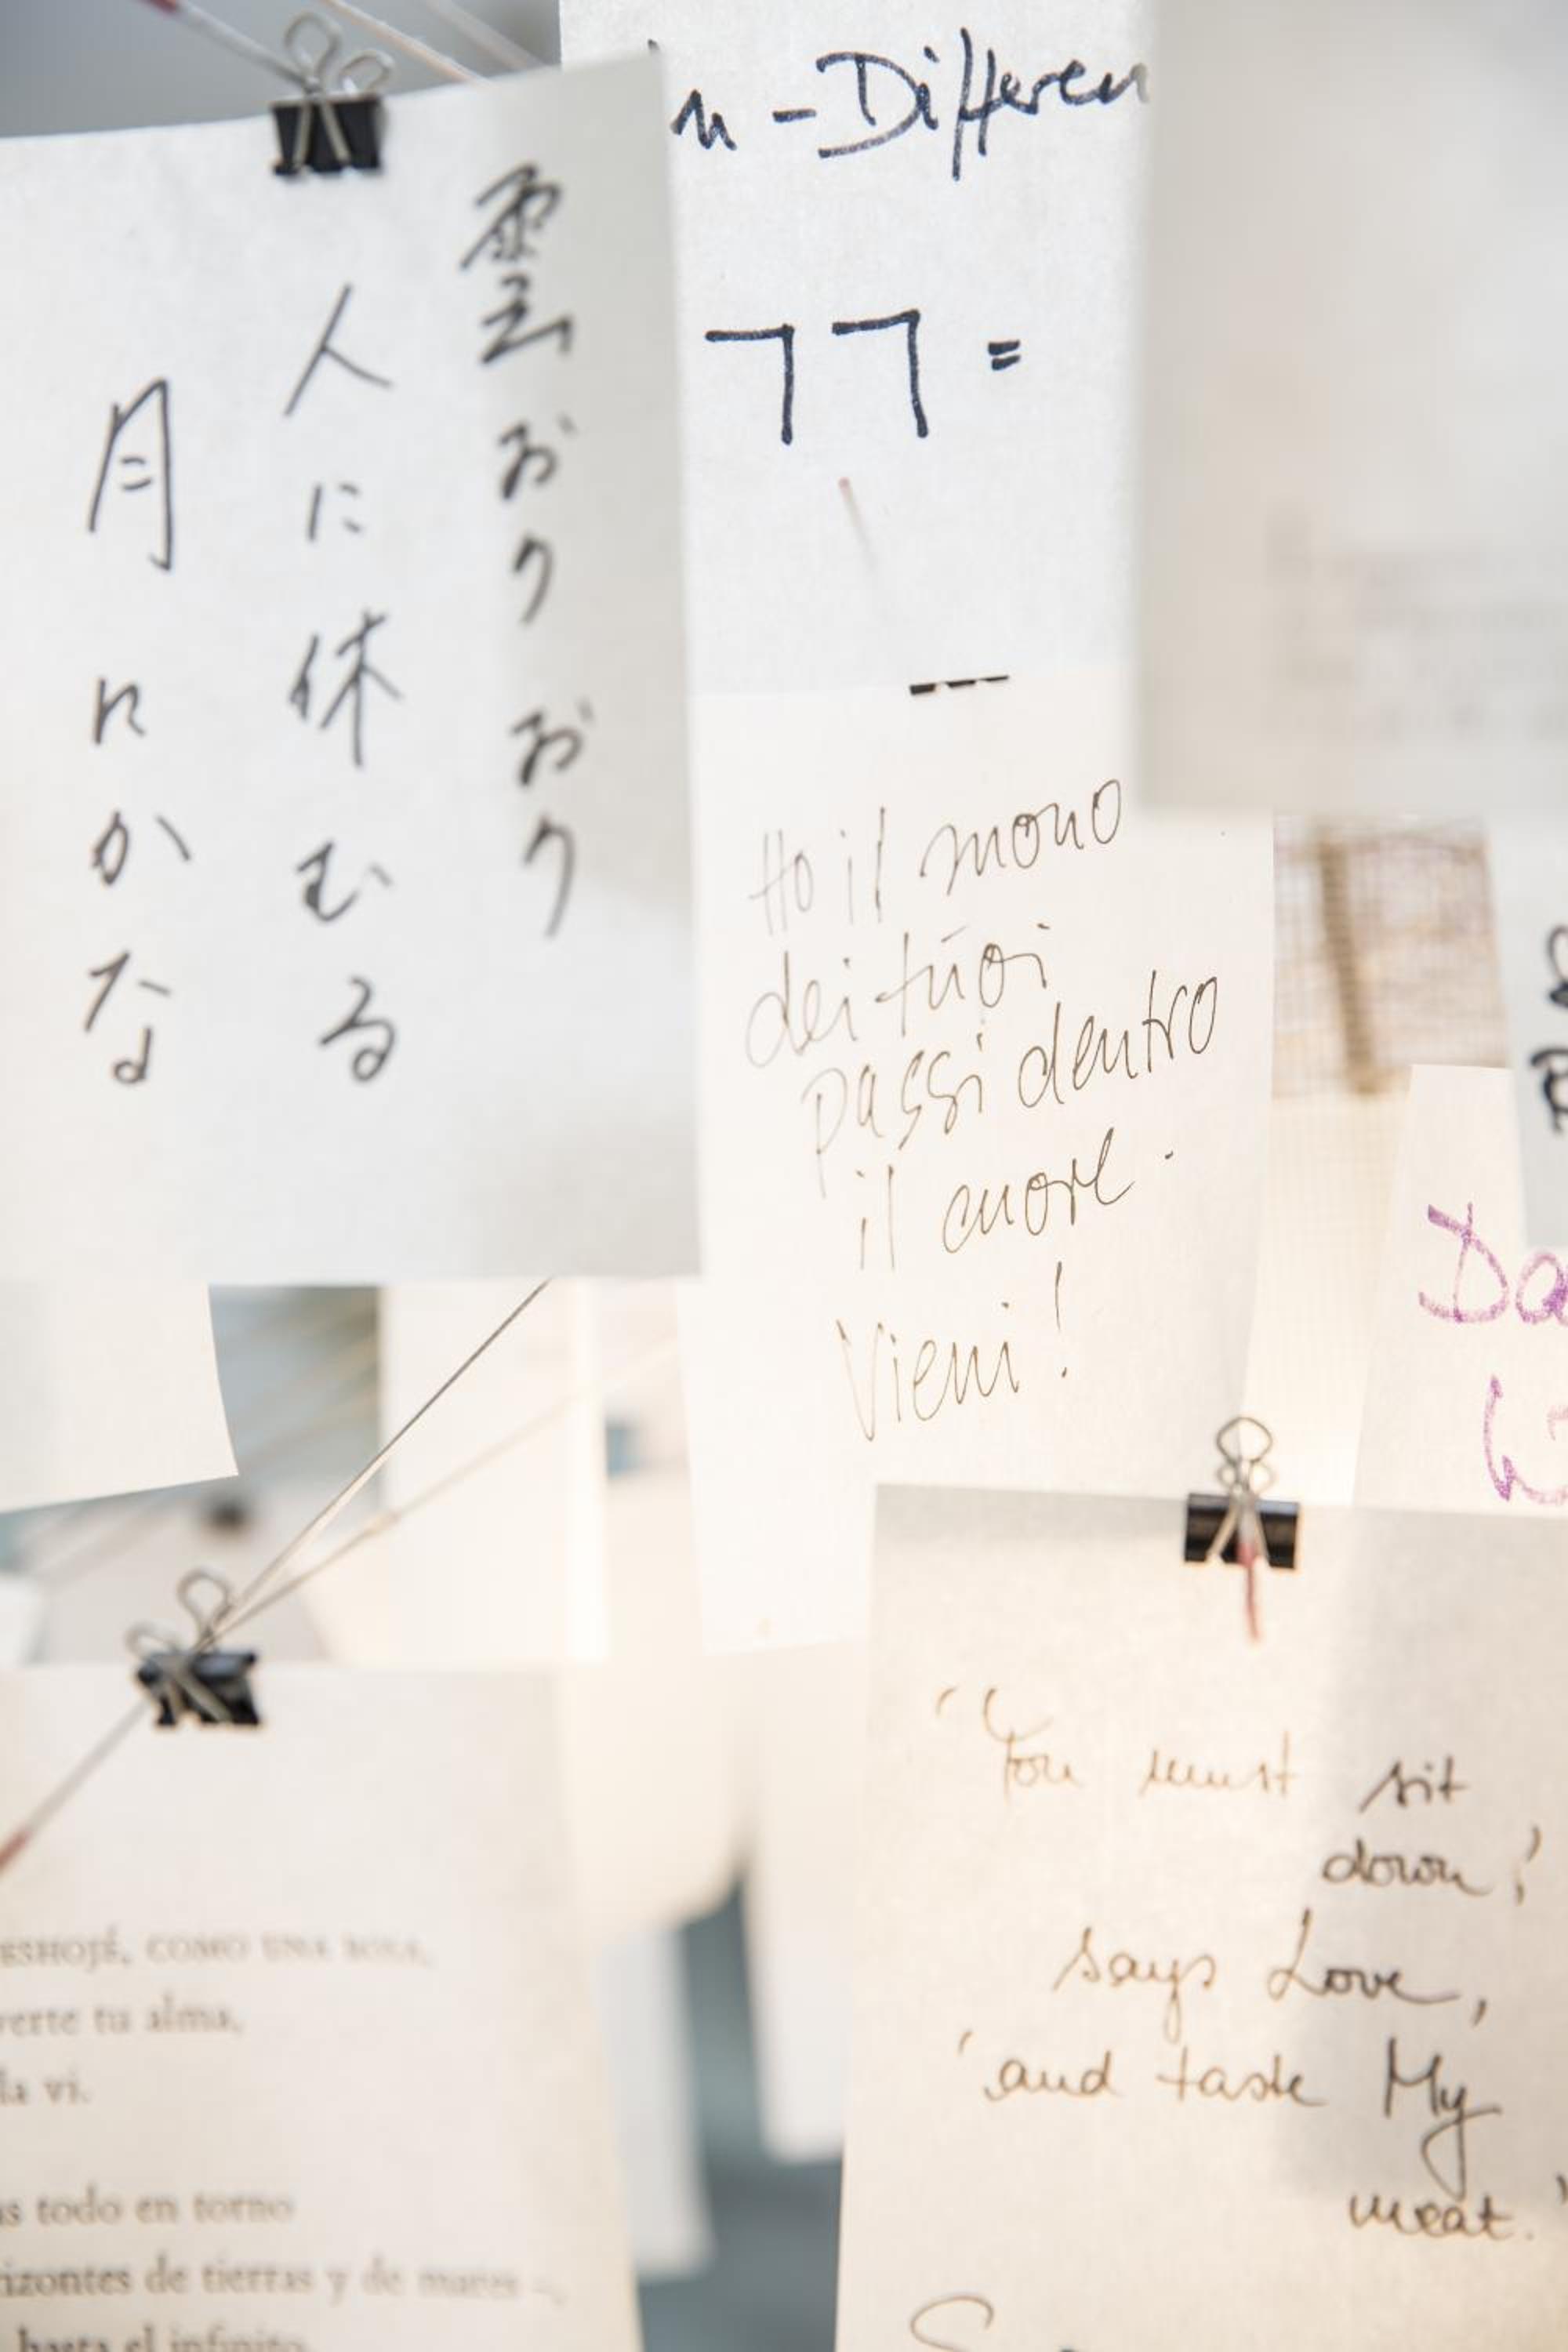 雲おりおり
人に休むる
月 かな
n-Differen
77 =
Ho il suono
dei tuoi
passi dentro
il cuore.
Vieni!
Da
ESHOJÉ, COMO UNA ROSA,
verte tu alma,
la vi.
s todo en torno
rizontes de tierras y de mares –,
hasta el infinito,
'You must sit
down,'
says Love,
'and taste My
meat.'